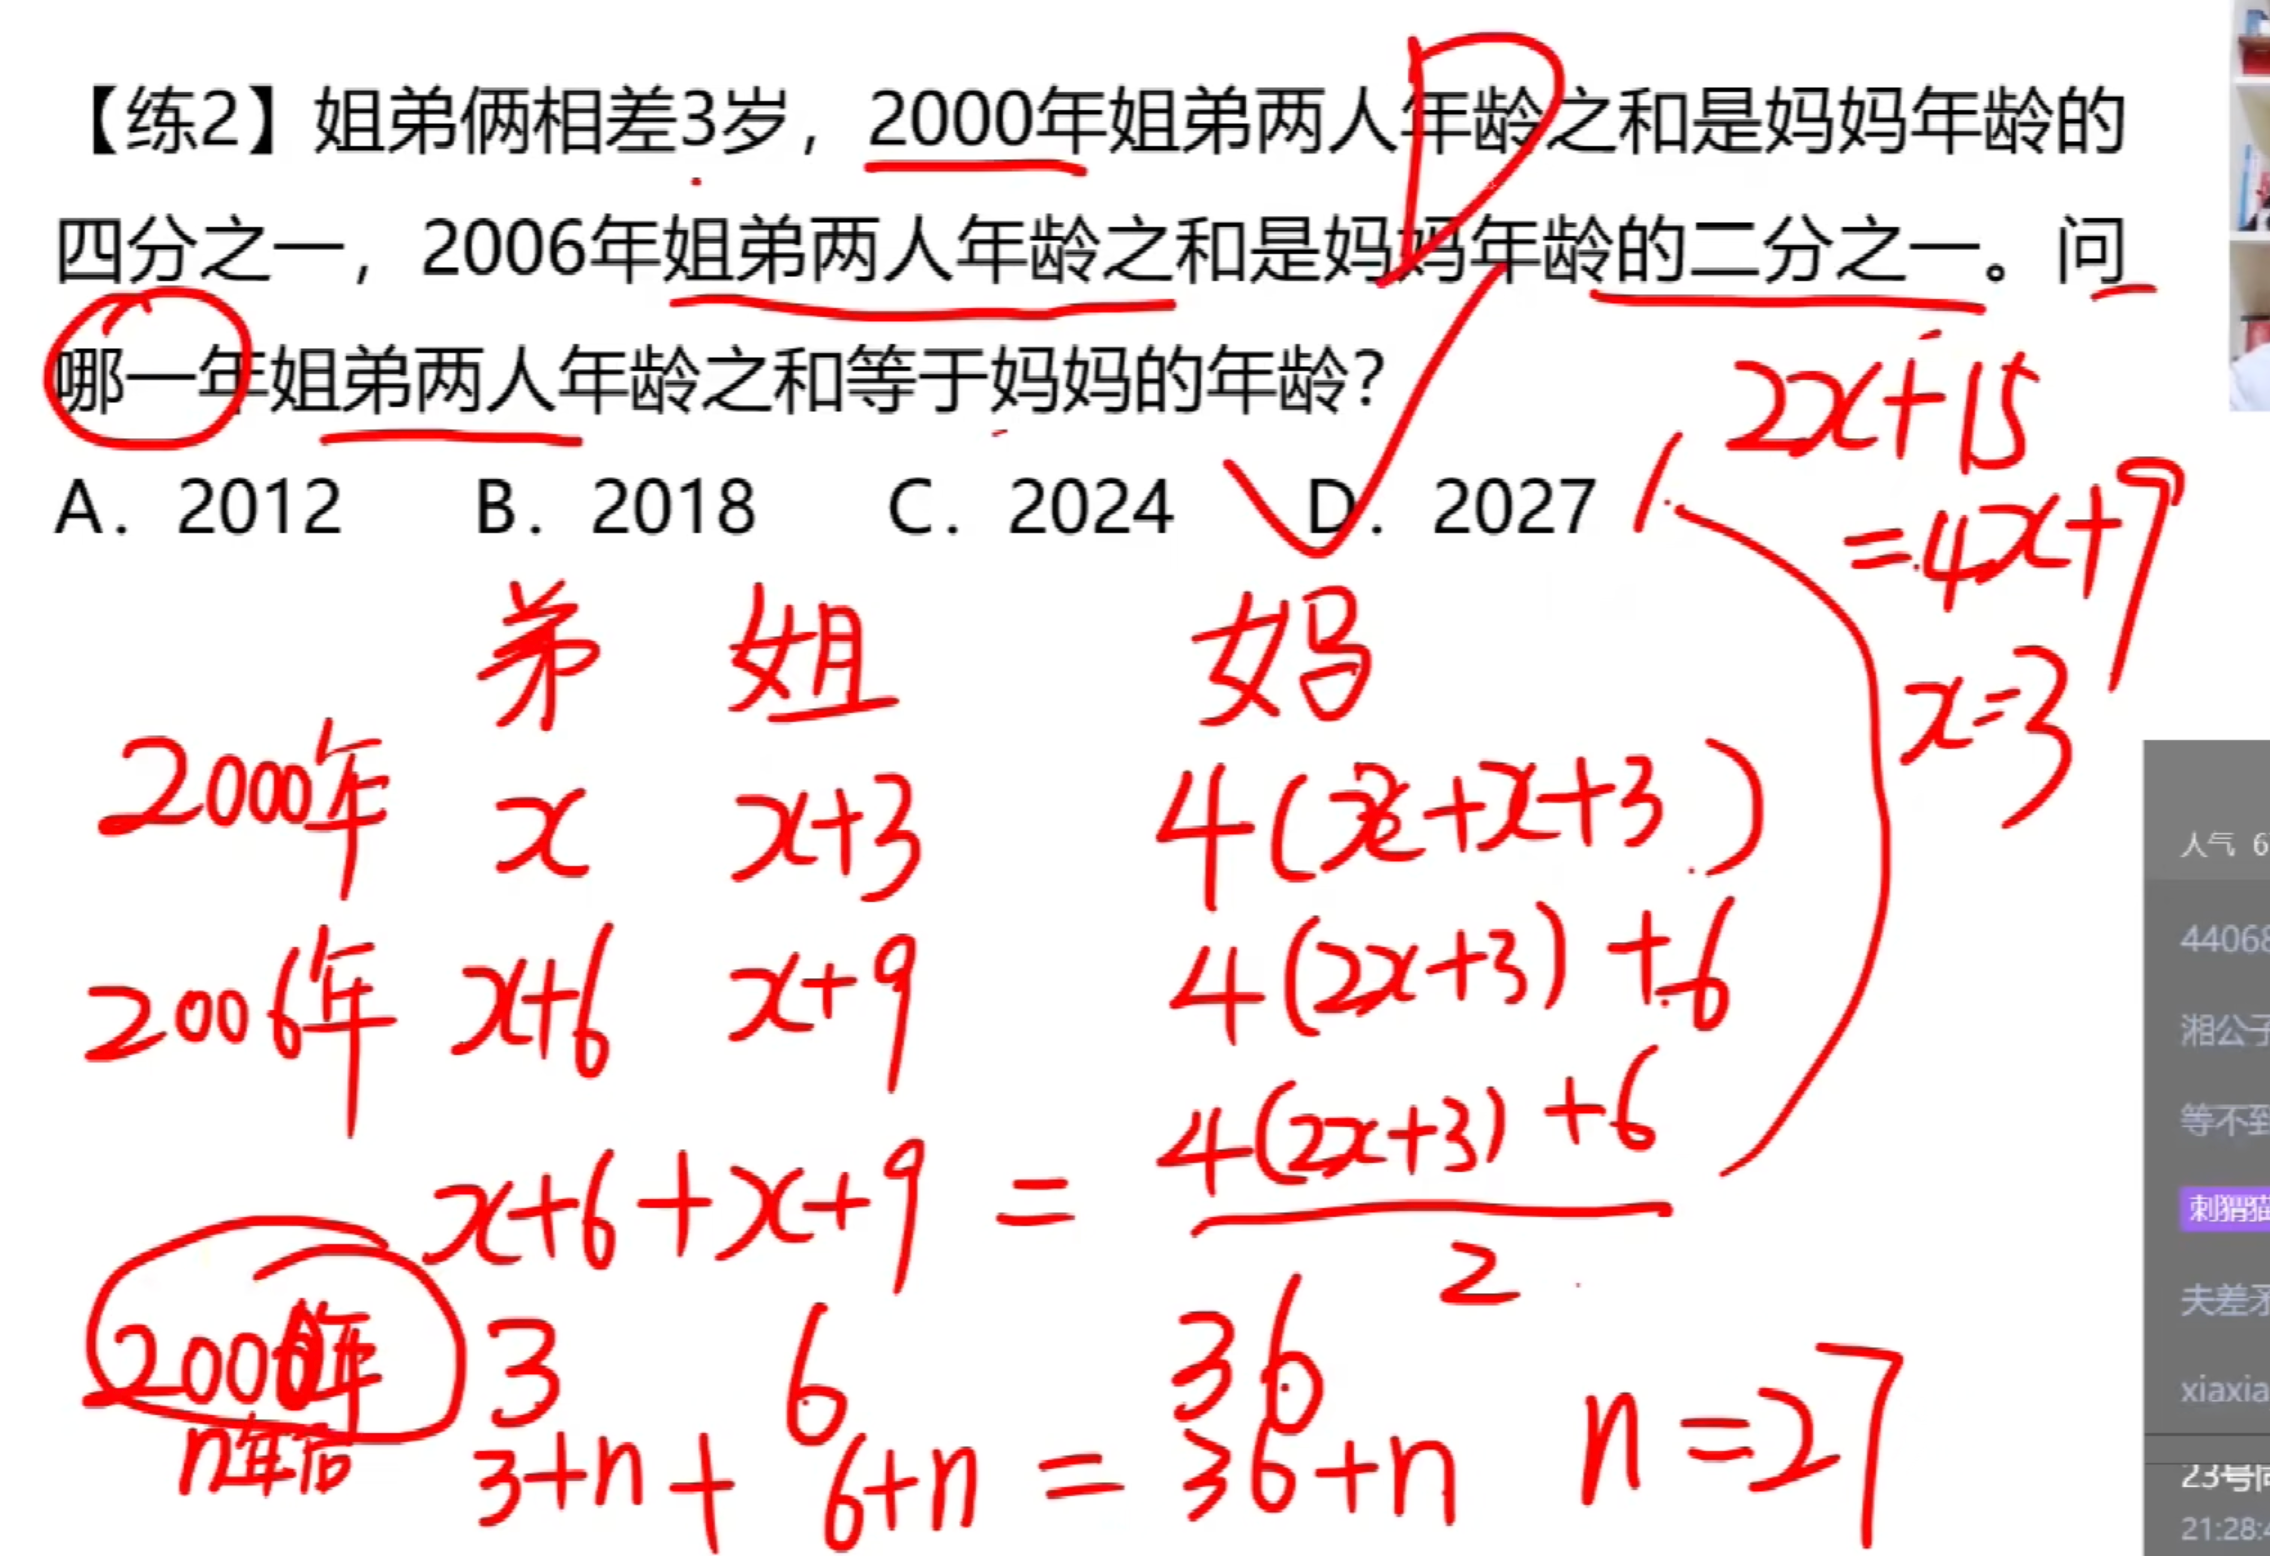 【练2】姐弟俩相差3岁，2000年姐弟两人年龄之和是妈妈年龄的
四分之一，2006年姐弟两人年龄之和是妈妈年龄的二分之一。问
哪一年姐弟两人年龄之和等于妈妈的年龄？
A. 2012 B. 2018 C. 2024 D. 2027
D
2x+15
=4x+9
x=3
弟 姐 妈
2000年 x x+3 4(x+x+3)
2006年 x+6 x+9 4(2x+3)+6
x+6+x+9 = 4(2x+3)+6
2
2000年 3 6 36
n年后 3+n + 6+n = 36+n n=27
人气 6
44068
湘公子
等不到
刺猬猫
夫差矛
xiaxia
23号同
21:28: